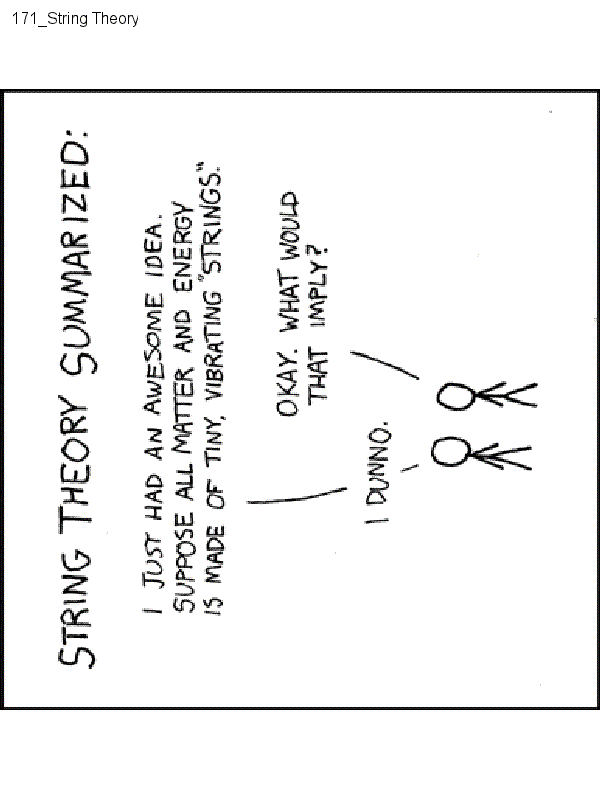 171_String Theory
STRING THEORY SUMMARIZED:
I JUST HAD AN AWESOME IDEA.
SUPPOSE ALL MATTER AND ENERGY
IS MADE OF TINY, VIBRATING "STRINGS."
OKAY. WHAT WOULD
THAT IMPLY?
I DUNNO.